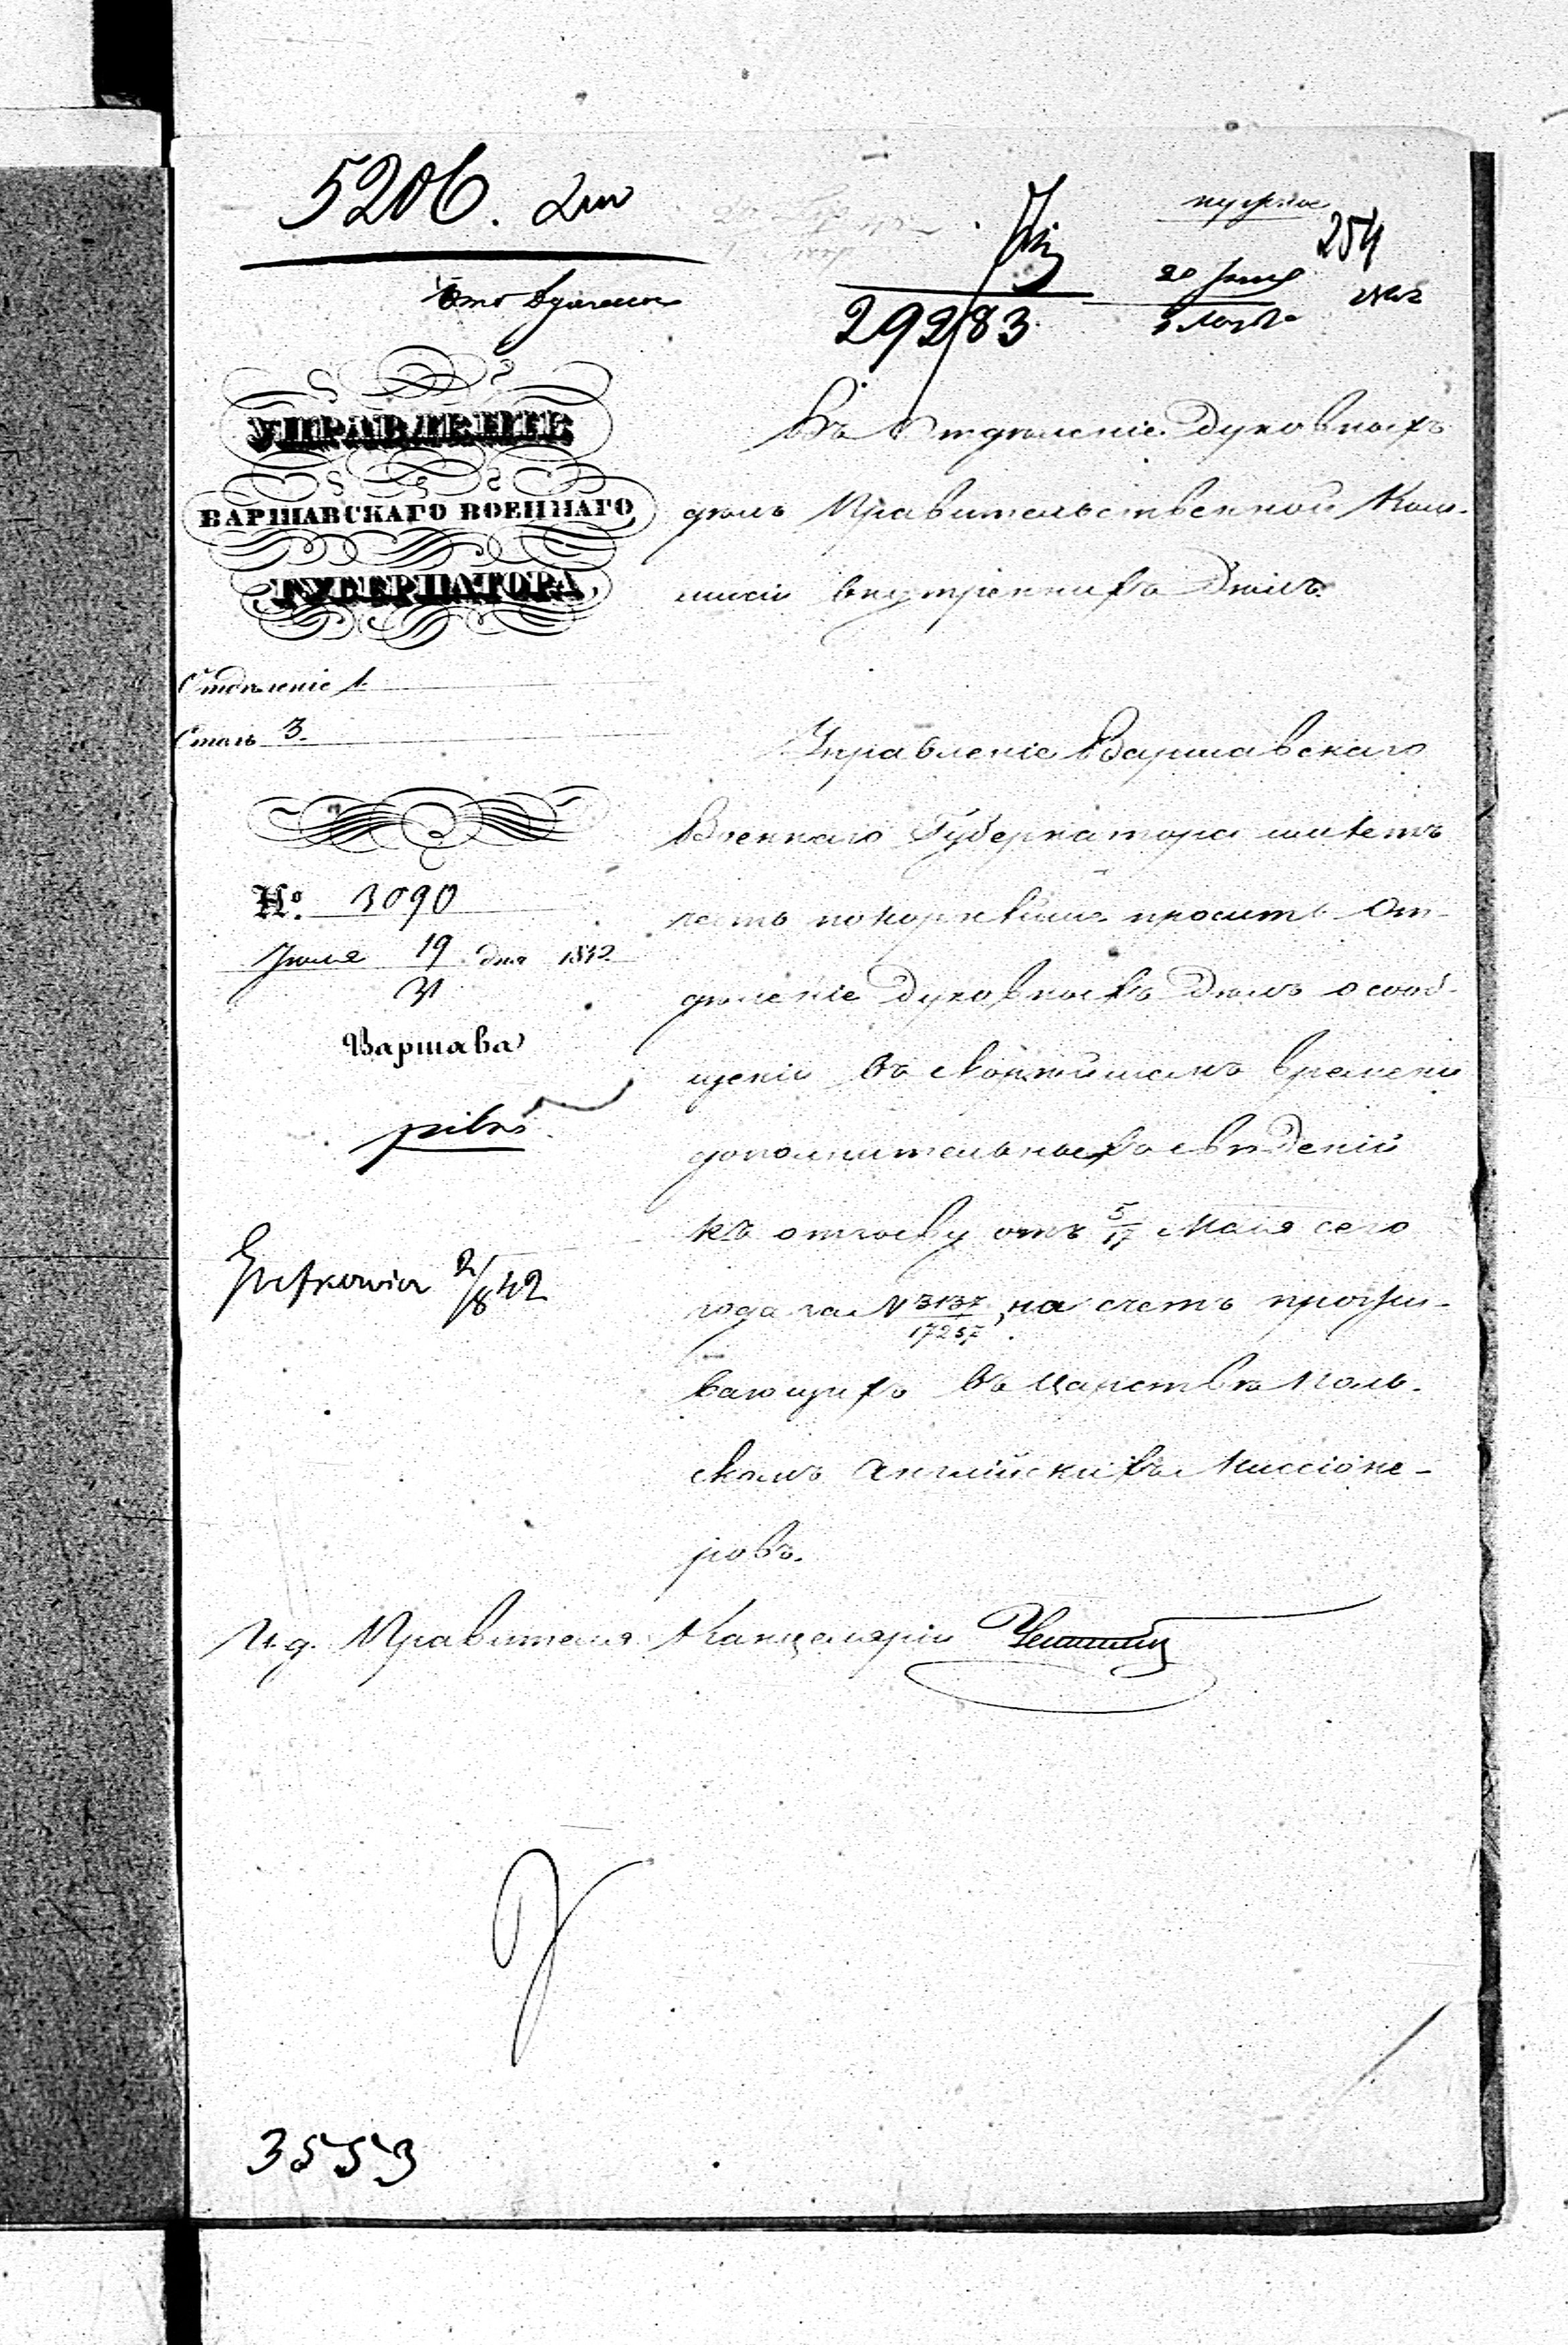 5206.
292/83
254
УПРАВЛЕНІЕ
ВАРШАВСКАГО ВОЕННАГО
ГУБЕРНАТОРА
Отдѣленіе 1.
Столъ 3.
№. 3090
Іюля 19 дня 1842
31
Варшава
pilno
2/8 42
Въ Отдѣленіе Духовныхъ
дѣлъ Правительственной Ком-
мисіи Внутреннихъ Дѣлъ.
Управленіе Варшавскаго
Военнаго Губернатора имѣетъ
честь покорнѣйше просить От-
дѣленіе Духовныхъ Дѣлъ о сооб-
щеніи въ скорѣйшемъ времени
дополнительныхъ свѣденій
къ отзыву отъ 5/17 Маія сего
года за № 3137/17257, на счетъ прожи-
вающихъ въ Царствѣ Поль-
скомъ Англійскихъ Миссіоне-
ровъ.
И. д. Правителя Канцеляріи
3553